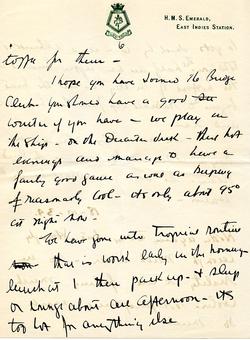 H.M.S. EMERALD,
EAST INDIES STATION.
6
for them –
I hope you have joined the Bridge
Club. You should have a good
winter if you have – we play in
the ship – on the Quarter deck – these hot
evenings and manage to have a
fairly good game as one is
reasonably cool – it's only about 95°
at night now
We have gone into tropical routine
that is work early in the morning
lunch at 1 then pack up – & sleep
or lounge about all afternoon – it's
too hot for anything else